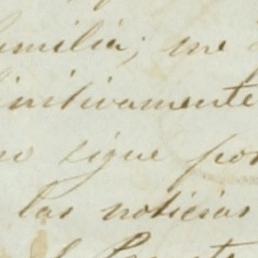 familia; me
initivamente
no sigue por
las noticias